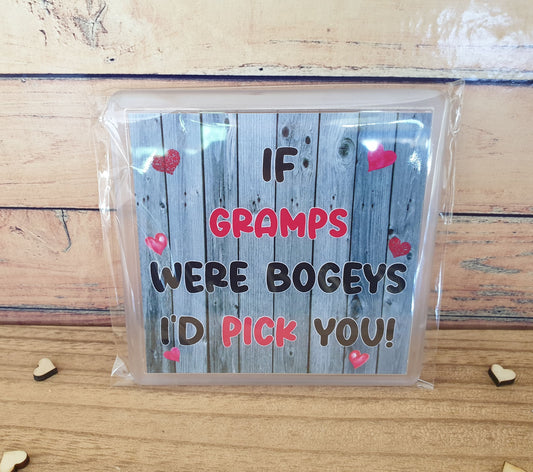 IF
GRAMPS
WERE BOGEYS
I'D PICK YOU!